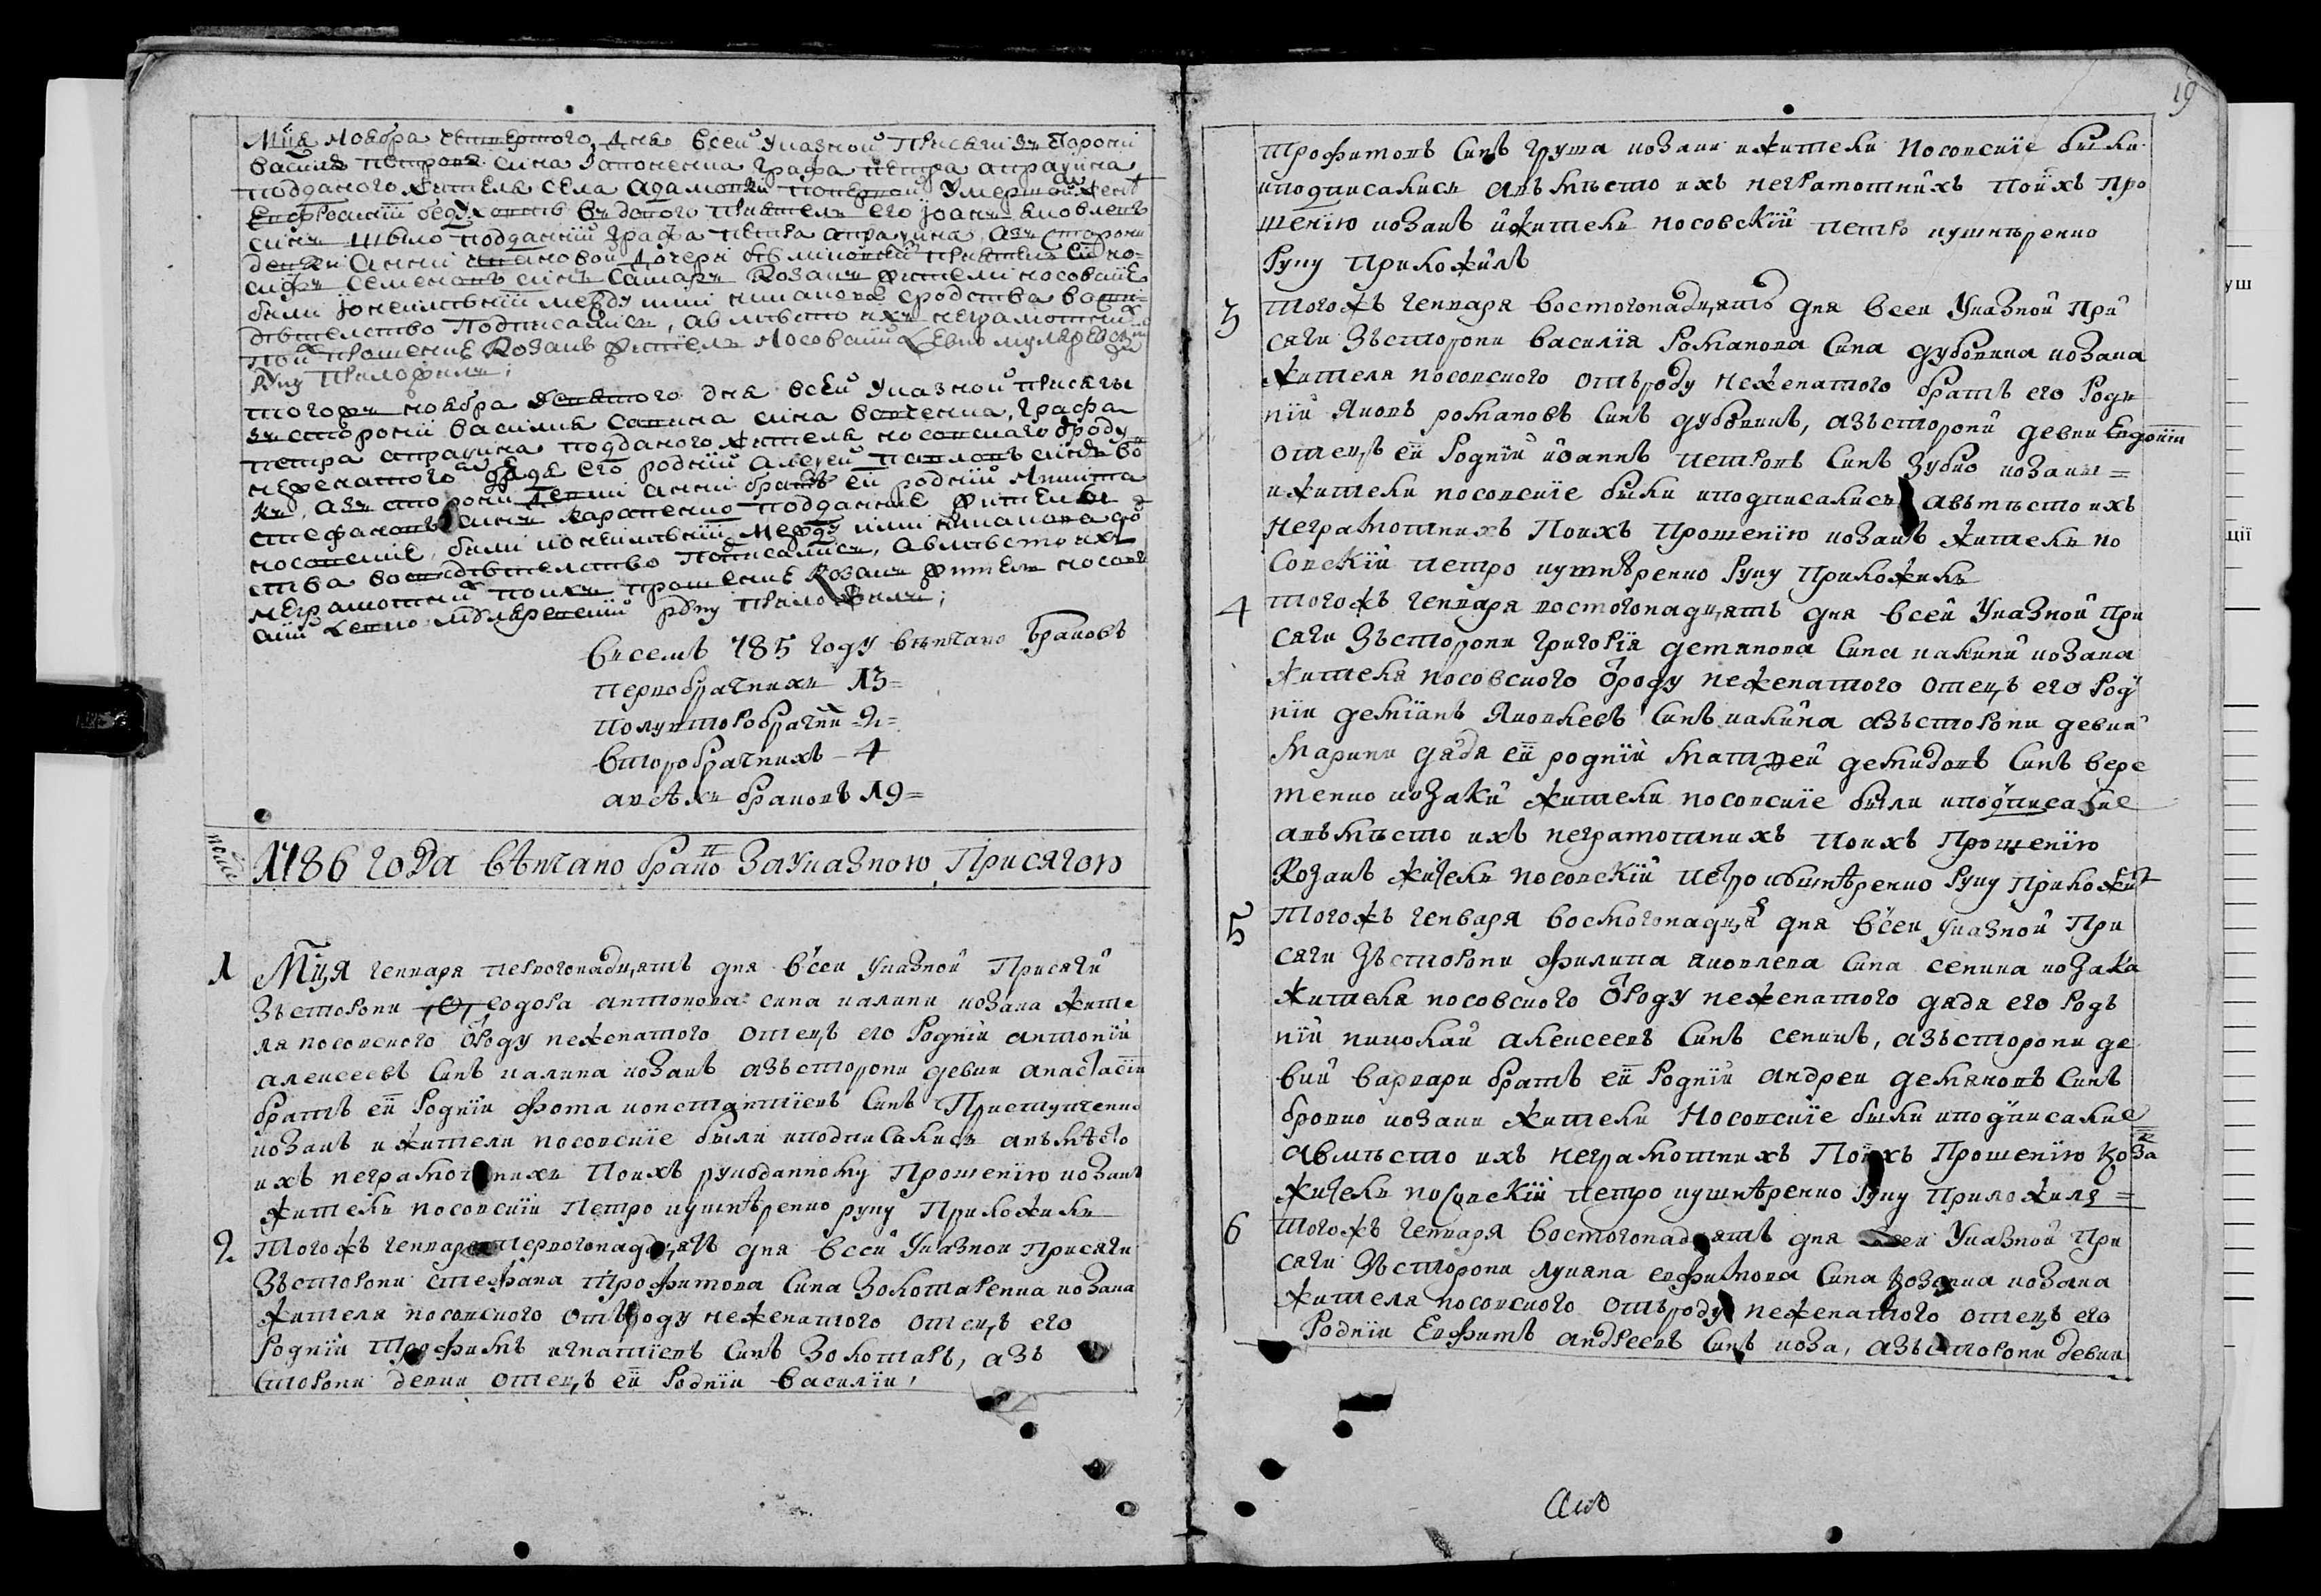 Мця Ноября четвертого дня всей Указной присяги зъ сторони
василя петрова сина графа петра апраѯина
подданого жителя села адамовки умершой
его Іоанъ яковлевъ
синъ Шило подданний графа петра апраѯина, азъ сторони
девки Анни дочери
семеновъ синъ Самаръ Козакъ жители носовские
были и онеимѣнии между ими никакова сродства восви-
дѣтелство подписалис, авмѣсто ихъ неграмотних
поих прошению Козакъ житель Носовский Левко
Руку приложилъ;
тогожъ ноября девятого дня всей указной присяги
зъ сторони василия савина сина графа
петра апраѯина подданого жителя носовского ѿроду
неженатого дядя его родний алеѯей павловъ синъ во
къ, азъ сторони девки анни братъ ей родний Никита
стефановъ синъ подданние жители
носовские, были и онеимѣнии между ими никакова срод
ства восвидѣтелство подписалис, авмѣсто ихъ
неграмотний поихъ прошение Козакъ житель носов
ский Левко руку приложилъ;
Всемъ 785 году вѣнчано браковъ
первобрачнихъ 13=
полувторобрачнй -2=
Второбрачнихъ - 4
авсѣхъ браковъ 19=
1786 года вѣнчано браковъ Зауказною Присягою
1 Мця генваря первогонадцять дня всеи Указной Присяги
Зъсторони Ѳеодора антонова сина калини козака жите
ля носовского ѿроду неженатого отецъ его Родний антоний
алексеевъ Синъ калина козакъ азъсторони девки анастасіи
братъ ей Родний Фома константиевъ Синъ Приступченко
козакъ и жители носовские были иподписалися авъмѣсто
ихъ неграмотнихъ Поихъ рукоданному Прошению козакъ
житель носовский Петро кушнѣренко руку Приложилъ
2 Тогожъ генваря первогонадцять дня всей Указной Присяги
Зъсторони стефана Трофимова Сина Золотаренка козака
жителя носовского отъроду неженатого отецъ его
Родний Трофимъ игнатиевъ Синъ Золотаръ, азъ
Сторони девки отецъ ей Родний Василий
19
Трофимовъ Синъ Груша козаки ижители носовские были
иподписались авъмѣсто ихъ неграмотнихъ поихъ про
шению козакъ ижитель носовский петро кушнѣренко
Руку Приложилъ
3 Тогожъ генваря востогонадцять дня всеи Указной При
сяги Зъсторони василия Романова Сина дубовика козака
жителя носовского отъроду неженатого братъ его Род
ний Яковъ романовъ Синъ дубовикъ, азъсторони девки Евдокии
отецъ ей Родний иоаннъ петровъ Синъ Зубко козаки=
ижители носовские были иподписались авъмѣсто ихъ
неграмотнихъ Поихъ Прошению козакъ житель но
совский петро кушнѣренко Руку Приложилъ
4 Тогожъ генваря востогонадцять дня всей Указной При
сяги Зъсторони григория демянова Сина калини козака
жителя носовского ѿроду неженатого отецъ его Род
ний демиянъ Яковлевъ Синъ калина азъсторони девки
Марини дядя ей родний матвей демидовъ Синъ вере
менко козаки жители носовские были иподписалис
авъмѣсто ихъ неграмотнихъ Поихъ Прошению
Козакъ житель носовский петро кушнѣренко Руку приложилъ
5 Тогожъ генваря востогонадцят дня всеи Указной При
сяги Зъсторони филипа яковлева Сина сеника козака
жителя носовского ѿроду неженатого дядя его Родъ
ний николай алексеевъ Синъ сеникъ, азъсторони де
вки варвари братъ ей Родний андрей демяновъ Синъ
бровко козаки жители Носовские были иподписалис
авмѣсто ихъ неграмотнихъ Поихъ Прошению козак
житель носовский петро кушнѣренко Руку приложиля=
6 Тогожъ генваря востогонадцять дня всеи Указной При
сяги Зъсторони лукяна евфимова Сина козака
жителя носовского отъроду неженатого отецъ его
Родний Евфимъ андреевъ Синъ коза, азъсторони девки